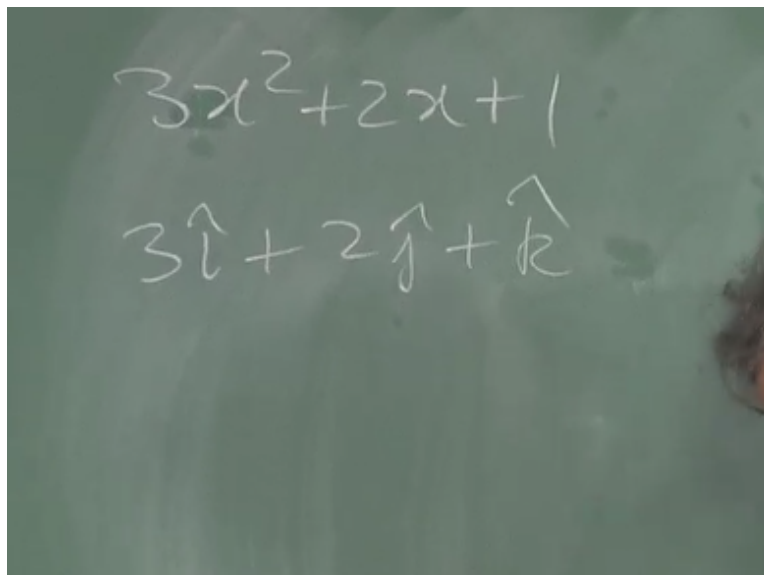 3x²+2x+1
3î+2ĵ+k̂